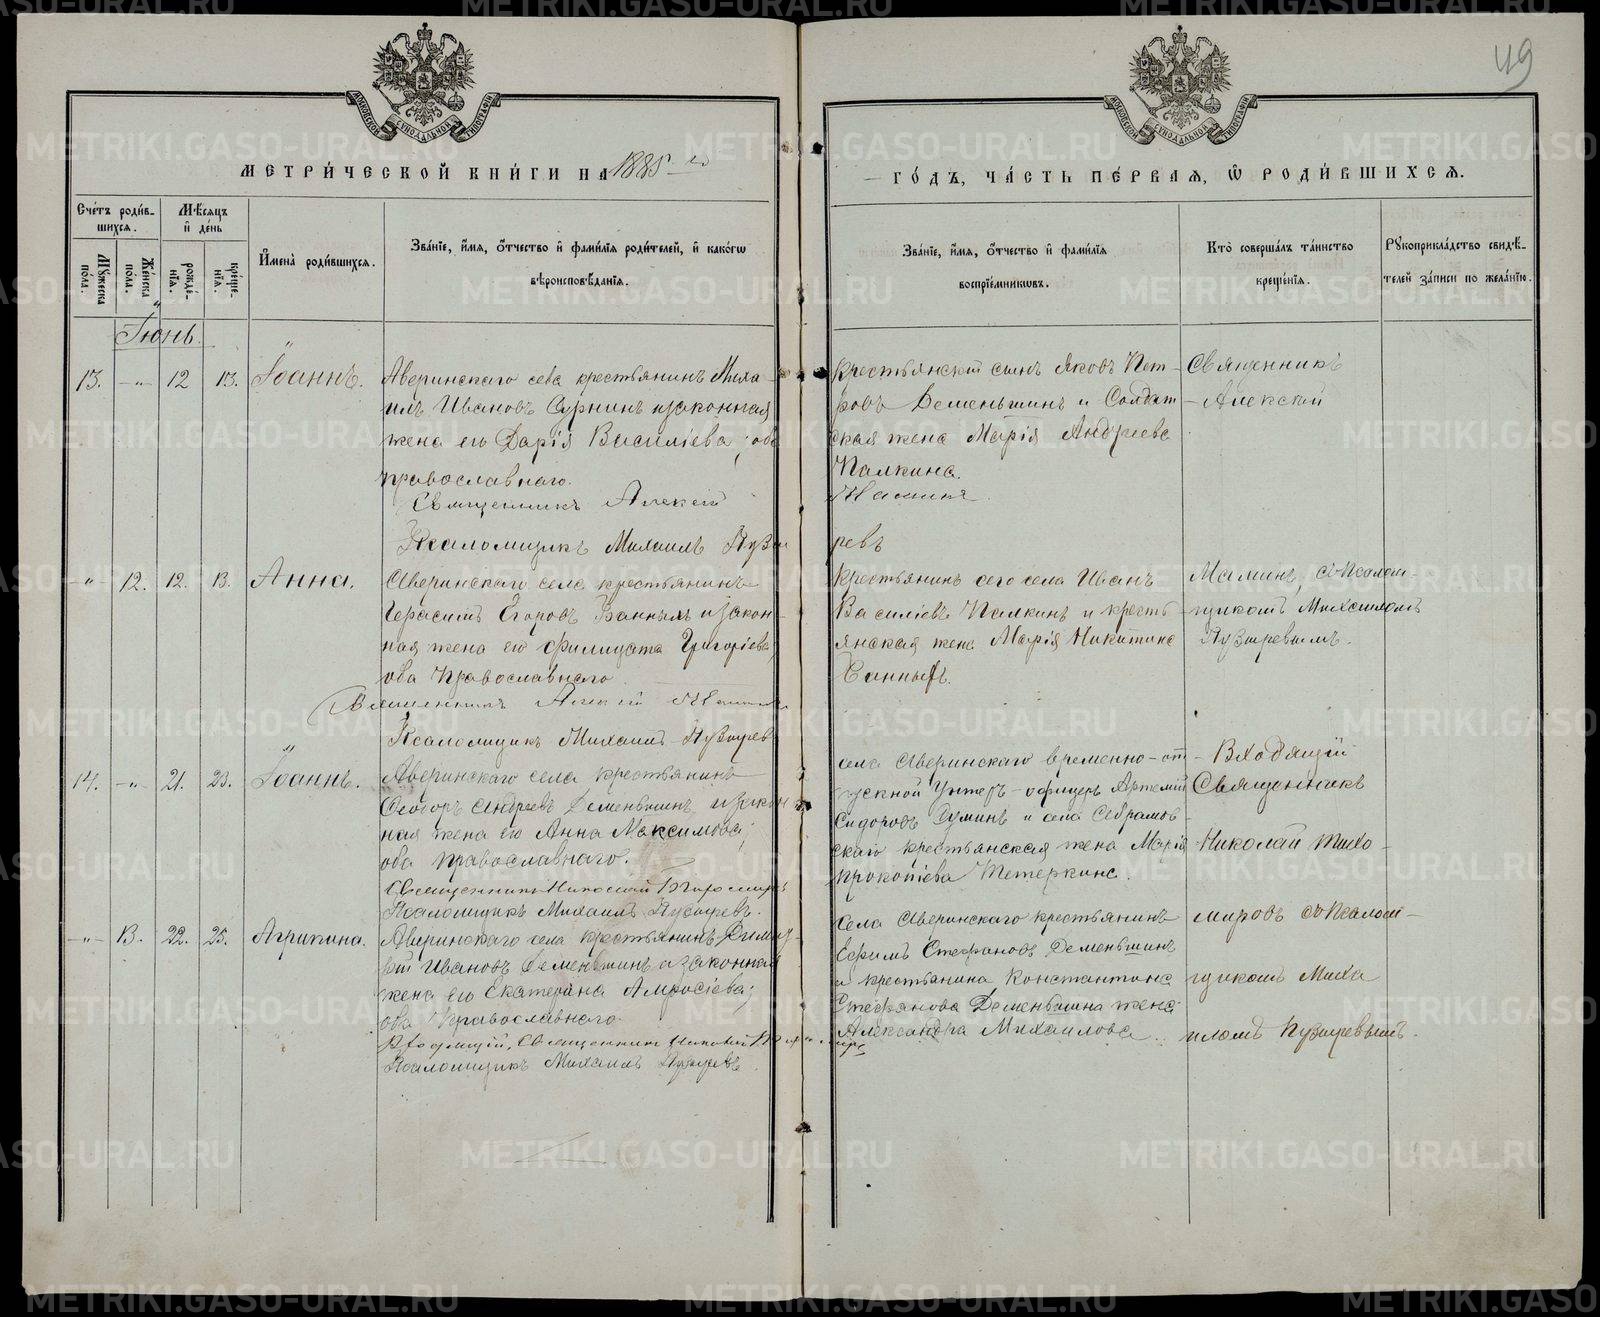 49
МОСКОВСКОЙ СѴНОДАЛЬНОЙ ТИПОГРАФІИ
МОСКОВСКОЙ СѴНОДАЛЬНОЙ ТИПОГРАФІИ
МЕТРИ́ЧЕСКОЙ КНИ́ГИ НА 1885 го
ГО́ДЪ, ЧА́СТЬ ПЕ́РВАЯ, Ѽ РОДИ́ВШИХСЯ.
Сче́тъ роди́в-
шихся.
Мꙋжеска по́ла.
Же́нска по́ла.
Мѣ́сяцъ
и҆ де́нь
рожде́-
нїѧ.
креще́-
нїѧ.
И҆мена̀ роди́вшихся.
Зва́нїе, и҆́мѧ, ѻ҆́тчество и҆ фами́лїѧ роди́телей, и҆ како́гѡ
вѣроисповѣ́данїѧ.
Зва́нїе, и҆́мѧ, ѻ҆́тчество и҆ фами́лїѧ
воспрїе́мникѡвъ.
Кто̀ соверша́лъ та́инство
креще́нїѧ.
Рꙋкоприкла́дство свидѣ́-
телей за́писи по жела́нїю.
Іюнь.
13. -"- 12 13. Іоаннъ.
Аверинскаго села крестьянинъ Миха-
илъ Ивановъ Сурнинъ и законная
жена его Дарія Василіева; оба
православнаго.
Священникъ Алексій
Псаломщикъ Михаилъ Пузы
Крестьянскій сынъ Яковъ Пет-
ровъ Деменьшинъ и Солдат-
ская жена Марія Андреева
Палкина.
Маминъ
ревъ
Священникъ
Алексій
-"- 12. 12. 13. Анна.
Аверинскаго села крестьянинъ
Герасимъ Егоровъ Банныхъ и закон-
ная жена его Филицата Григоріева,
оба Православнаго
Священникъ Алексій Маминъ
Псаломщикъ Михаилъ Пузырев
Крестьянинъ сего села Иванъ
Василіевъ Палкинъ и кресть-
янская жена Марія Никитина
Банныхъ.
Маминъ, съ Псалом-
щикомъ Михаиломъ
Пузыревымъ.
14. -"- 21. 23. Іоаннъ.
Аверинскаго села крестьянинъ
Ѳеодоръ Андреевъ Деменьшинъ и закон
ная жена его Анна Максимова;
оба православнаго.
Священникъ Николай Тихомировъ
Псаломщикъ Михаилъ Пузыревъ.
села Аверинскаго временно-от-
пускной Унтеръ-офицеръ Артемій
Сидоровъ Думинъ и села
скаго крестьянская жена Марія
Прокопіева Тетеркина.
Входящій
Священникъ
Николай Тихо-
-"- 13. 22. 25. Агрипина.
Аверинскаго села крестьянинъ Димит-
рій Ивановъ Деменьшинъ и законная
жена его Екатерина Амросіева;
оба Православнаго
Входящій, Священникъ Николай Тихомиръ
Псаломщикъ Михаилъ Пузыревъ.
Села Аверинскаго крестьянинъ
Ефимъ Стефановъ Деменьшинъ
и крестьянина Константина
Стефанова Деменьшина жена
Александра Михаилова.
мировъ съ Псалом-
щикомъ Миха
иломъ Пузыревымъ.